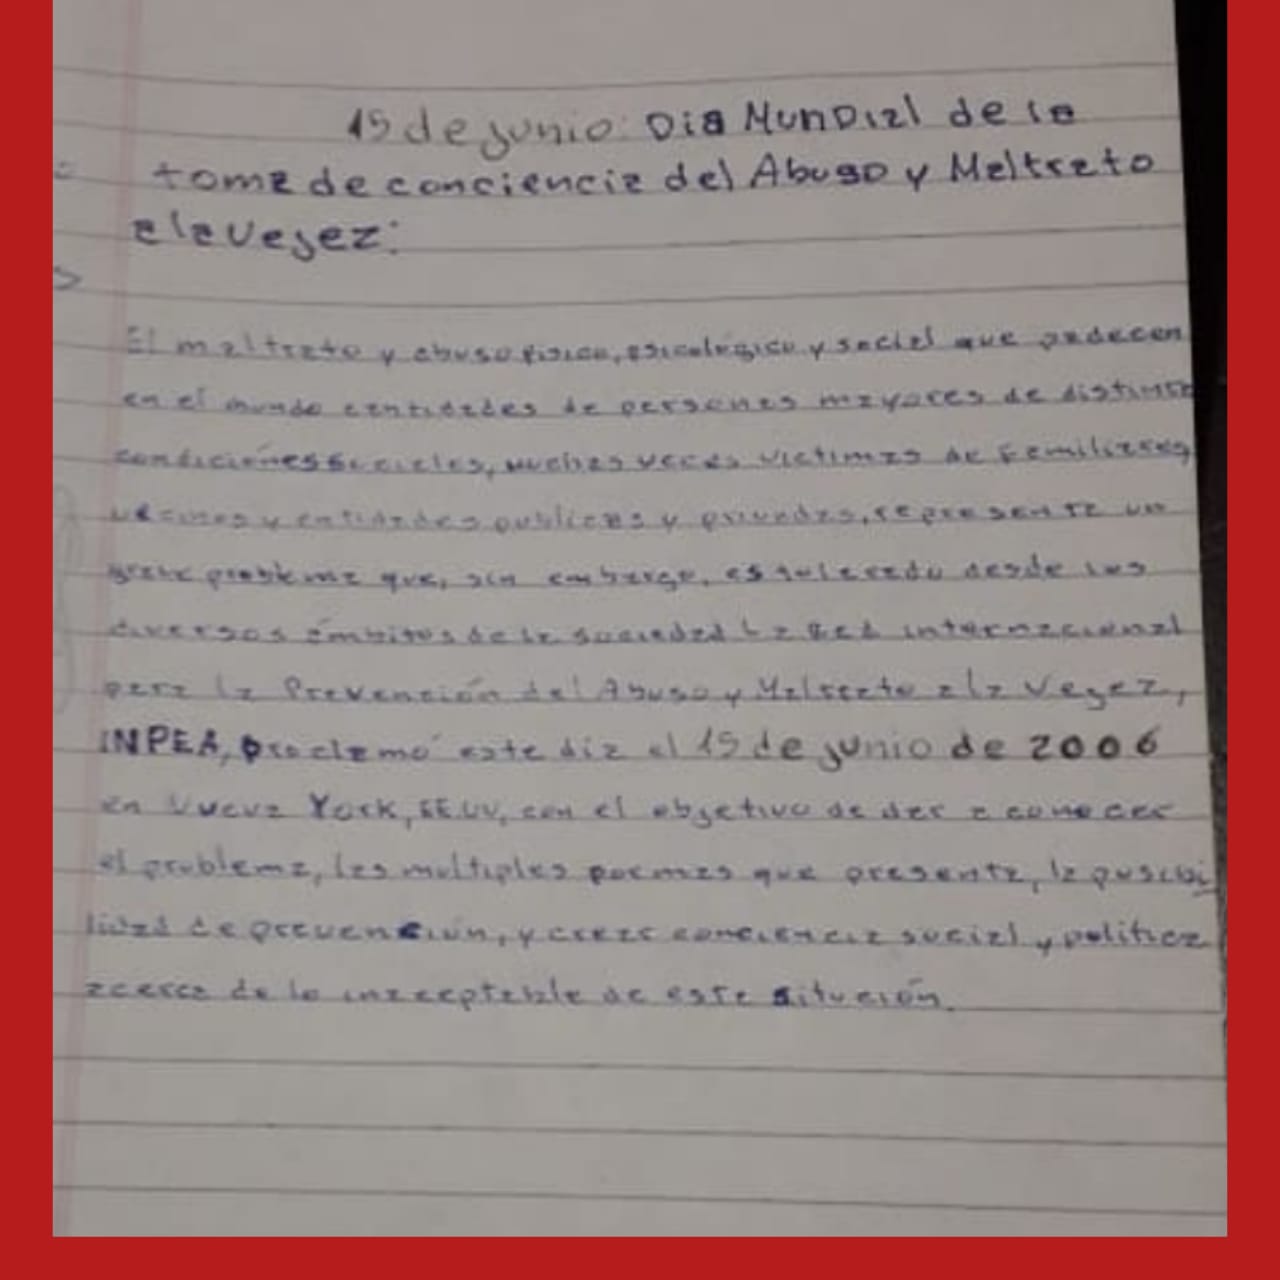 15 de junio: Dia Mundial de la
toma de conciencia del Abuso y Maltrato
a la vejez:
El maltrato y abuso fisico, psicológico y social que padecen
en el mundo cantidades de personas mayores de distintas
condiciones sociales, muchas veces victimas de familiares,
vecinos y entidades publicas y privadas, representa un
grave problema que, sin embargo, es tolerado desde los
diversos ámbitos de la sociedad La Red internacional
para la Prevención del Abuso y Maltrato a la Vejez,
INPEA, proclamó este dia el 15 de junio de 2006
en Nueva York, EE.UU, con el objetivo de dar a conocer
el problema, las multiples formas que presenta, la posibi
lidad de prevención, y crear conciencia social y politica
acerca de lo inaceptable de esta situción.